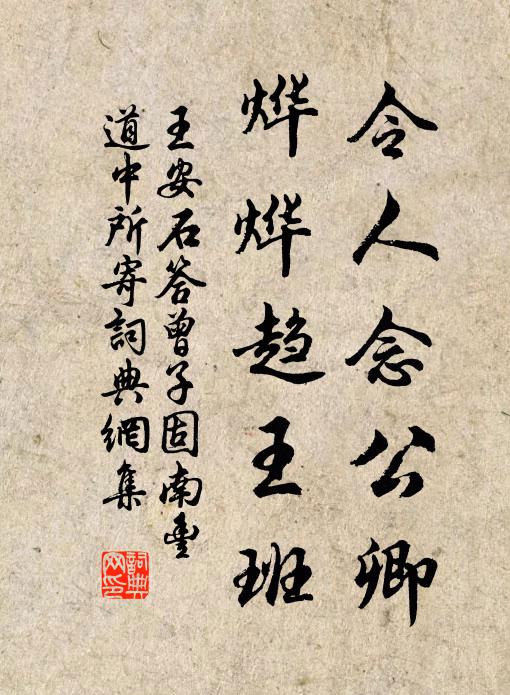 令人念公卿
烨烨趋王班
王安石答曾子固南豊
道中所寄詞典網集
詞典網印